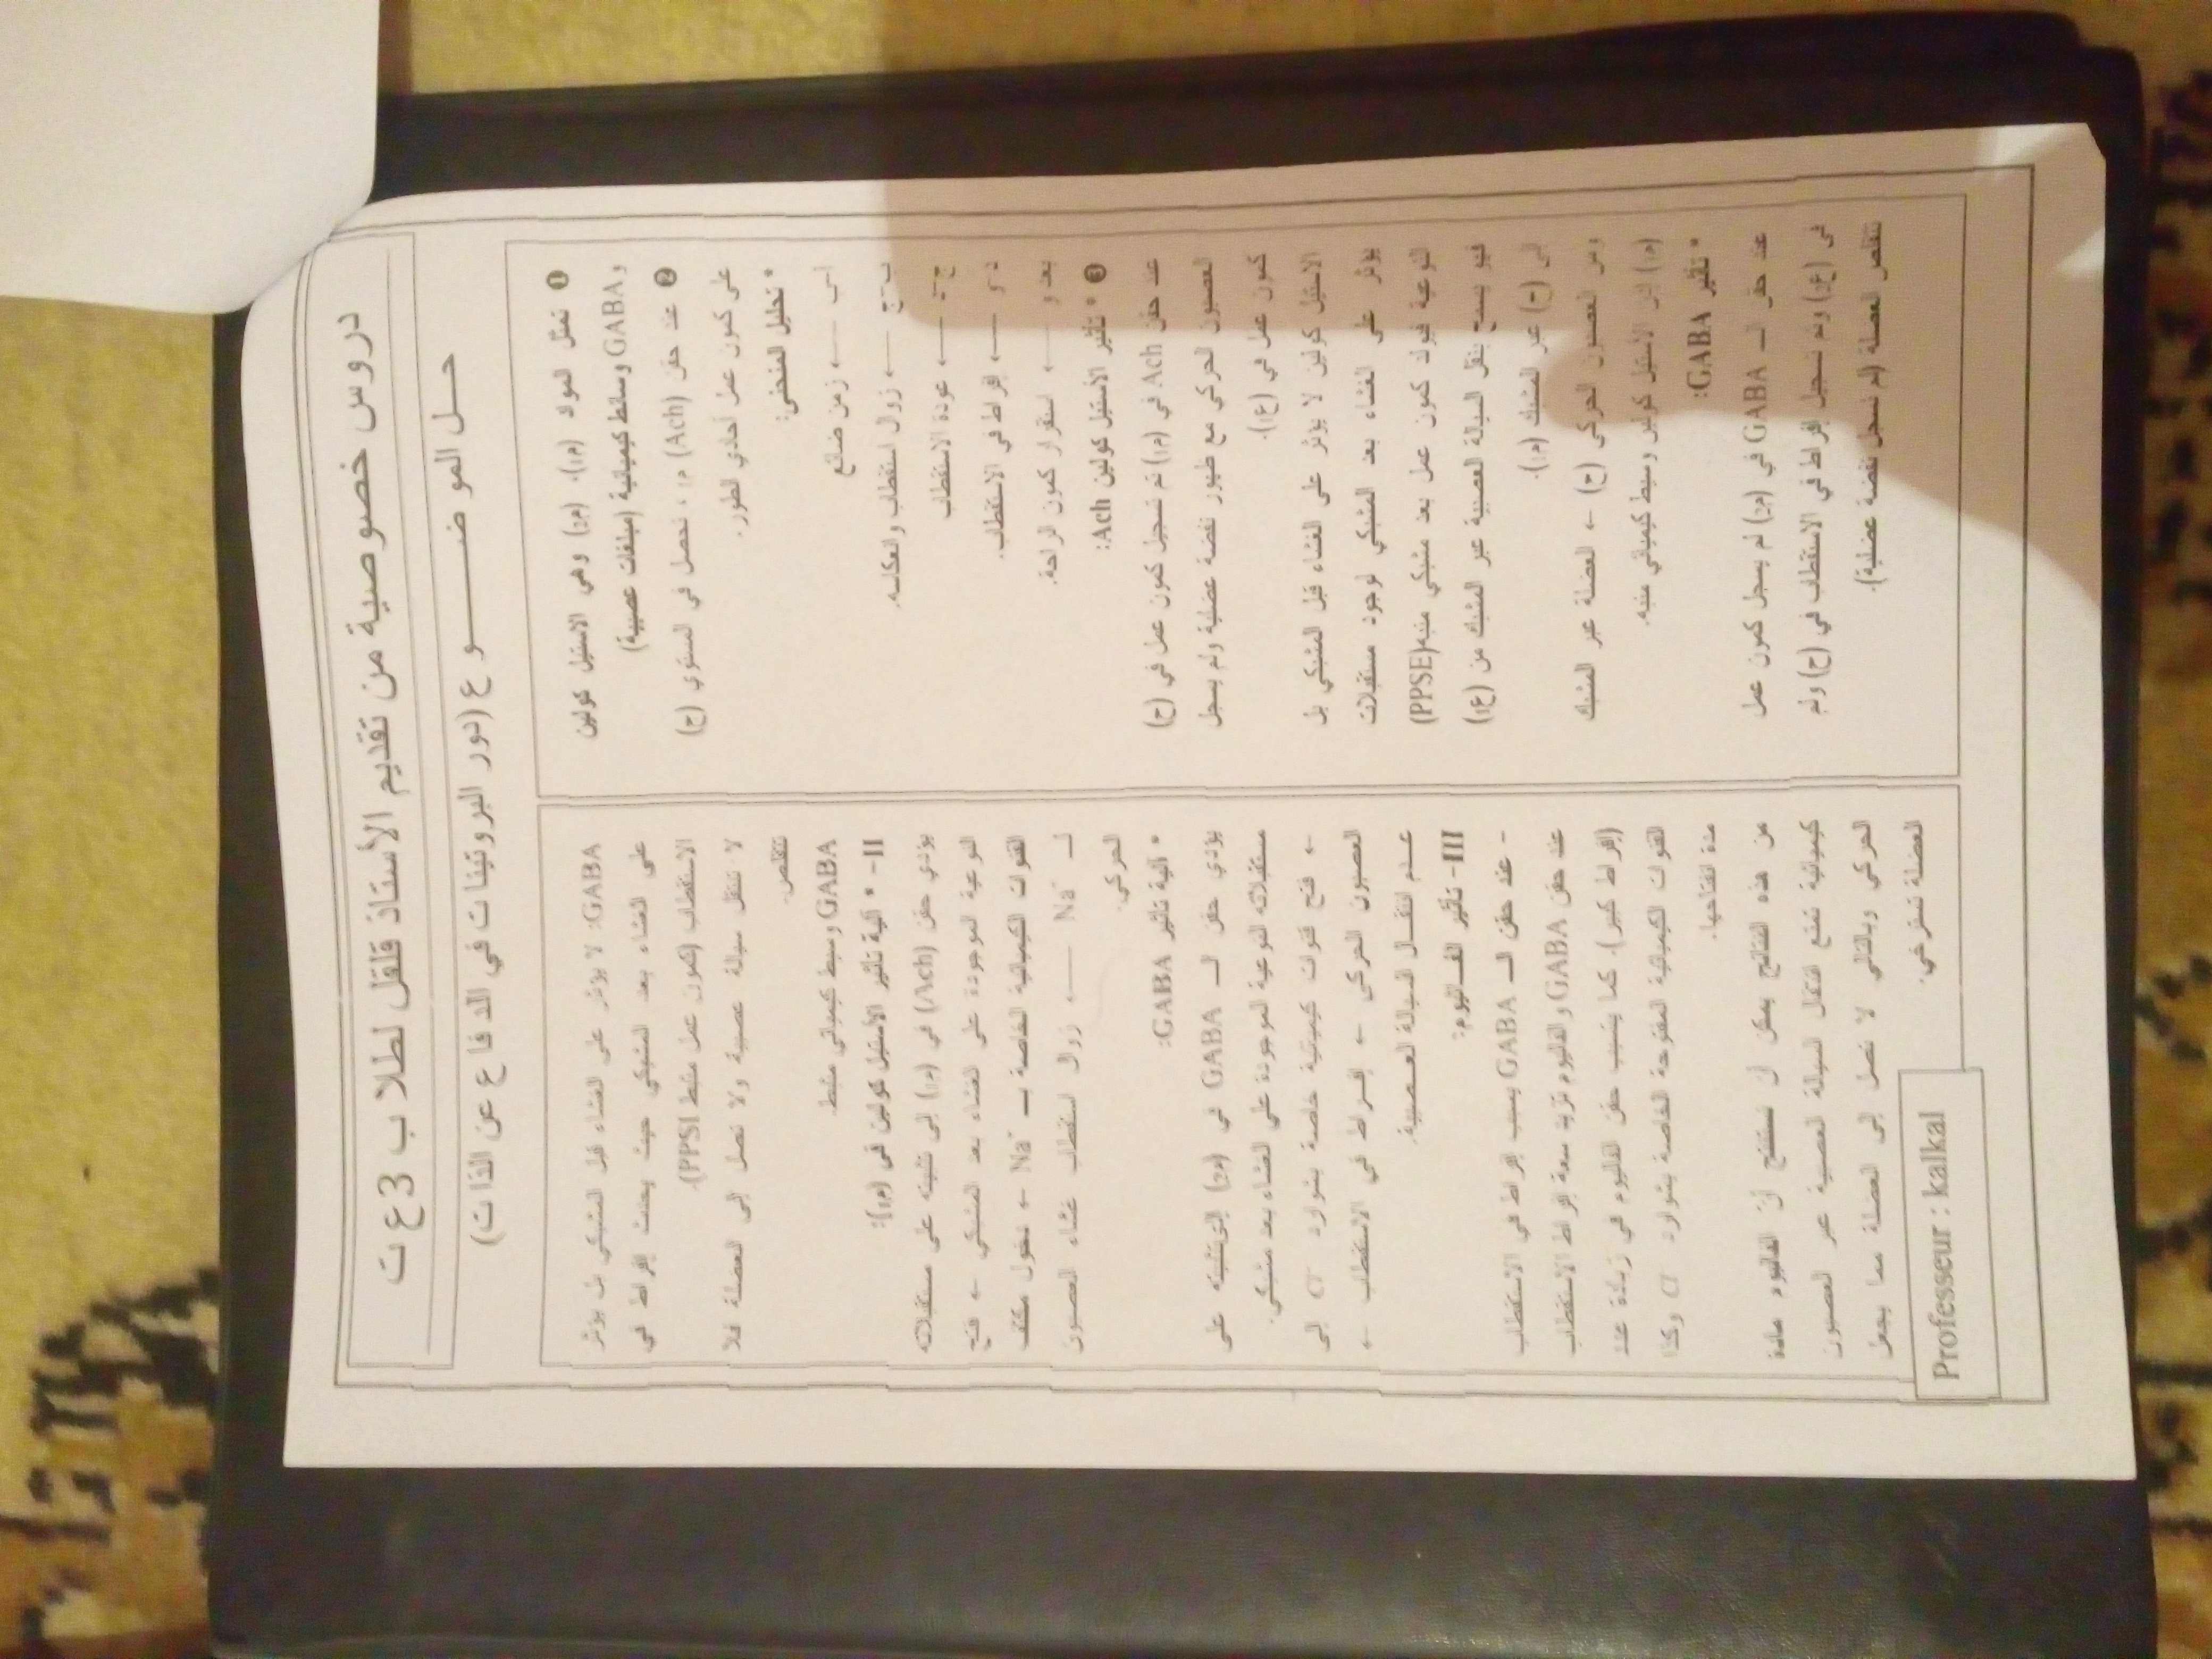 دروس خصوصية من تقديم الأستاذ قلقل لطلاب 3 ع ت
حـل الموضـــــــوع (دور البروتينات في الدفاع عن الذات)
❶ تمثل المواد (م1)، (م2) وهي الاستيل كولين
و GABA وسائط كيميائية (مبلغات عصبية)
❷ عند حقن (Ach) م1 ، نحصل في المستوى (ح)
على كمون عمل أحادي الطور.
• تحليل المنحنى:
أ-ب ← زمن ضائع
ب-ج ← زوال استقطاب وانعكاسه.
ج-د ← عودة الاستقطاب
د-و ← إفراط في الاستقطاب.
بعد و ← استقرار كمون الراحة.
❸ • تأثير الأستيل كولين Ach:
عند حقن Ach في (م1) تم تسجيل كمون عمل في (ح)
العصبون الحركي مع ظهور نفضة عضلية ولم يسجل
كمون عمل في (ع1).
الاستيل كولين لا يؤثر على الغشاء قبل المشبكي بل
يؤثر على الغشاء بعد المشبكي لوجود مستقبلات
النوعية فيولد كمون عمل بعد مشبكي منبه(PPSE)
فهو يسمح بنقل السيالة العصبية عبر المشبك من (ع1)
إلى (ح) عبر المشبك (م1).
ومن العصبون الحركي (ح) ← العضلة عبر المشبك
(م1) إذن الأستيل كولين وسيط كيميائي منبه.
• تأثير GABA:
عند حقن الـ GABA في (م2) لم يسجل كمون عمل
في (ع2) وتم تسجيل إفراط في الاستقطاب في (ح) ولم
تتقلص العضلة (لم نسجل نفضة عضلية).
GABA: لا يؤثر على الغشاء قبل المشبكي بل يؤثر
على الغشاء بعد المشبكي حيث يحدث إفراط في
الاستقطاب (كمون عمل مثبط PPSI).
لا تنتقل سيالة عصبية ولا تصل إلى العضلة فلا
تتقلص.
GABA وسيط كيميائي مثبط.
II- • آلية تأثير الأستيل كولين في (م1):
يؤدي حقن (Ach) في (م1) إلى تثبيته على مستقبلاته
النوعية الموجودة على الغشاء بعد المشبكي ← فتح
القنوات الكيميائية الخاصة بـ Na⁺ ← دخول مكثف
لـ Na⁺ ← زوال استقطاب غشاء العصبون
الحركي.
• آلية تأثير GABA:
يؤدي حقن الـ GABA في (م2) إلى تثبيته على
مستقبلاته النوعية الموجودة على الغشاء بعد مشبكي.
← فتح قنوات كيميائية خاصة بشوارد Cl⁻ إلى
العصبون الحركي ← إفراط في الاستقطاب ←
عدم انتقال السيالة العصبية.
III- تأثير الفاليوم:
- عند حقن الـ GABA يسبب إفراط في الاستقطاب
عند حقن GABA و الفاليوم تزيد سعة إفراط الاستقطاب
(إفراط كبير). كما يتسبب حقن الفاليوم في زيادة عدد
القنوات الكيميائية المفتوحة الخاصة بشوارد Cl⁻ وكذا
مدة انفتاحها.
من هذه النتائج يمكن أن نستنتج أن الفاليوم مادة
كيميائية تمنع انتقال السيالة العصبية عبر العصبون
الحركي وبالتالي لا تصل إلى العضلة مما يجعل
العضلة تسترخي.
Professeur : kalkal